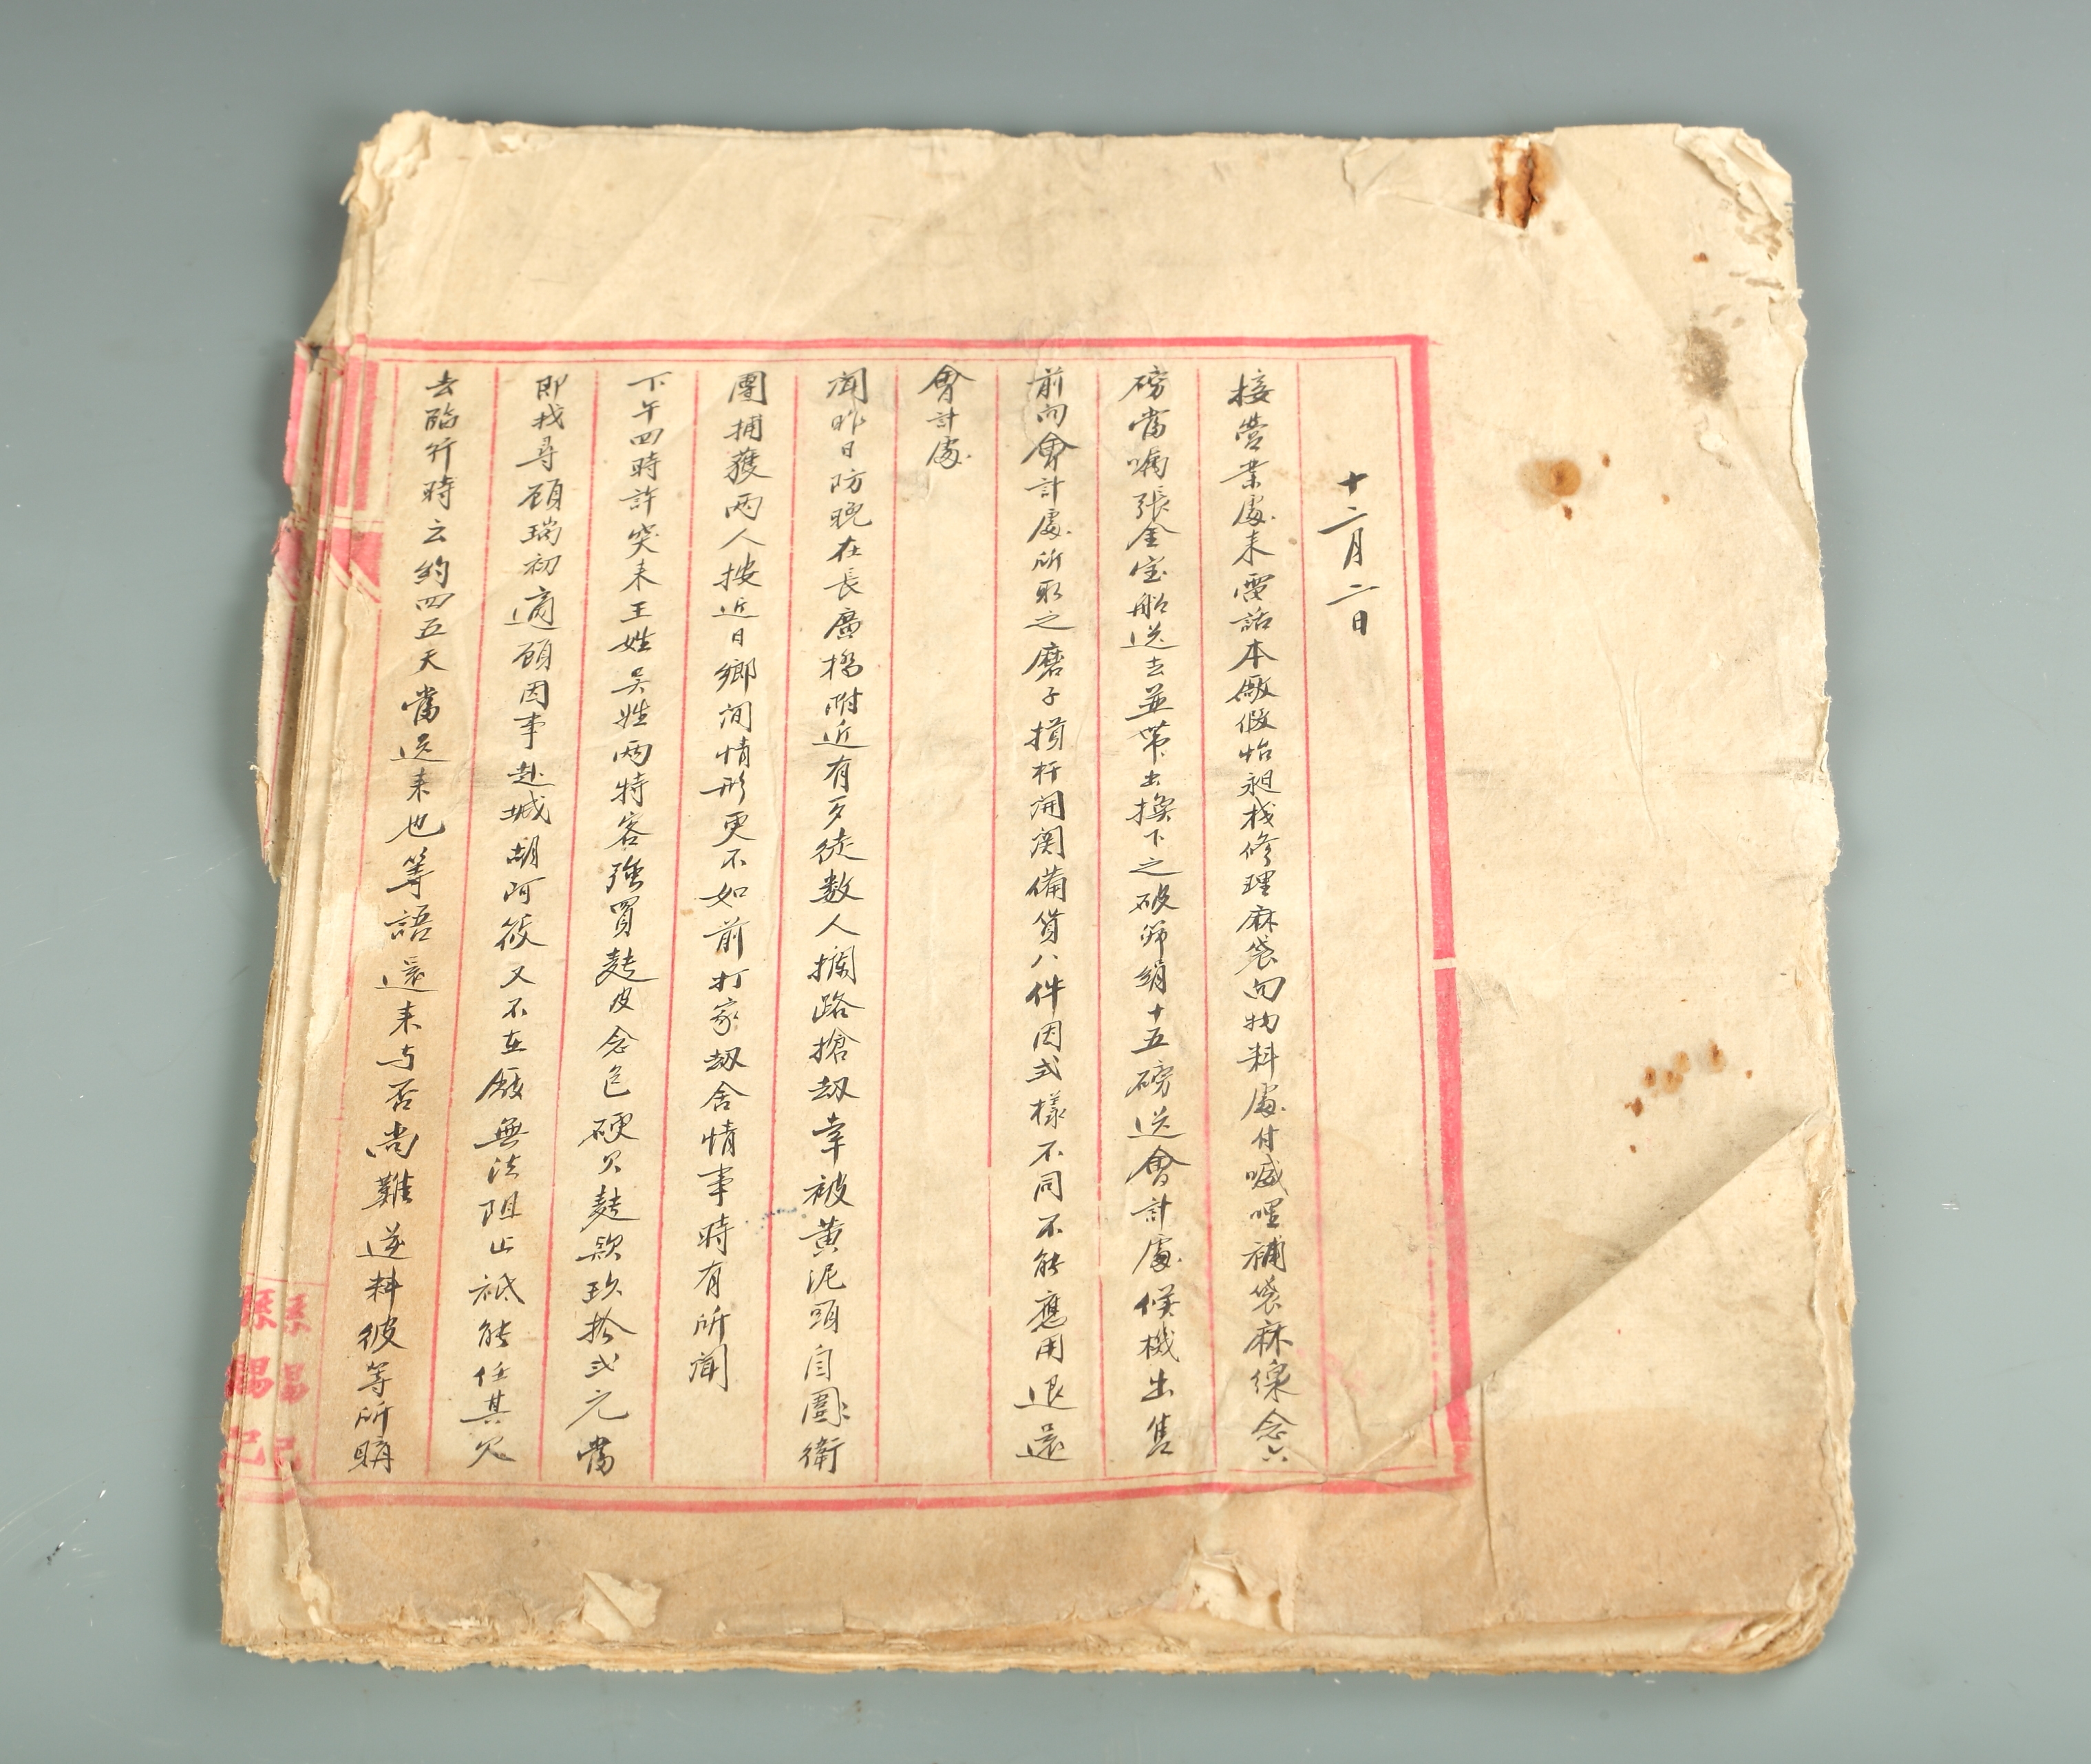 十二月二日
接營業處来電話本廠假怡昶棧修理麻袋向物料處付喊哩補袋麻線念六
磅當嘱張金宝船送去並帶出換下之破篩絹十五磅送會計處候機出售
前向會計處所取之磨子損杆開関備貨八件因式樣不同不能應用退還
會計處
闻昨日防晚在長廣橋附近有歹徒数人攔路搶劫幸被黄泥頭自圍衛
團捕獲两人按近日鄉间情形更不如前打家劫舍情事時有所闻
下午四時許突来王姓吴姓两特客強買麩皮念包硬欠麩款玖拾弍元當
即找尋顧瑞初適顧因事赴城胡阿筱又不在廠無法阻止祗能任其欠
去臨行時云約四五天當送来也等語還来与否尚難逆料彼等所購